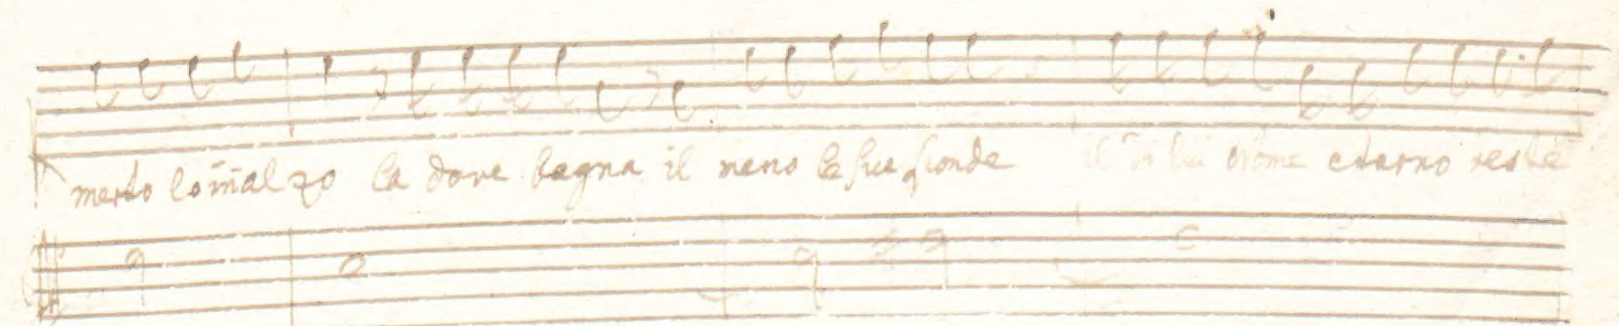 merto lo inalzo la dove bagna il neno le sue sponde nome eterno reste